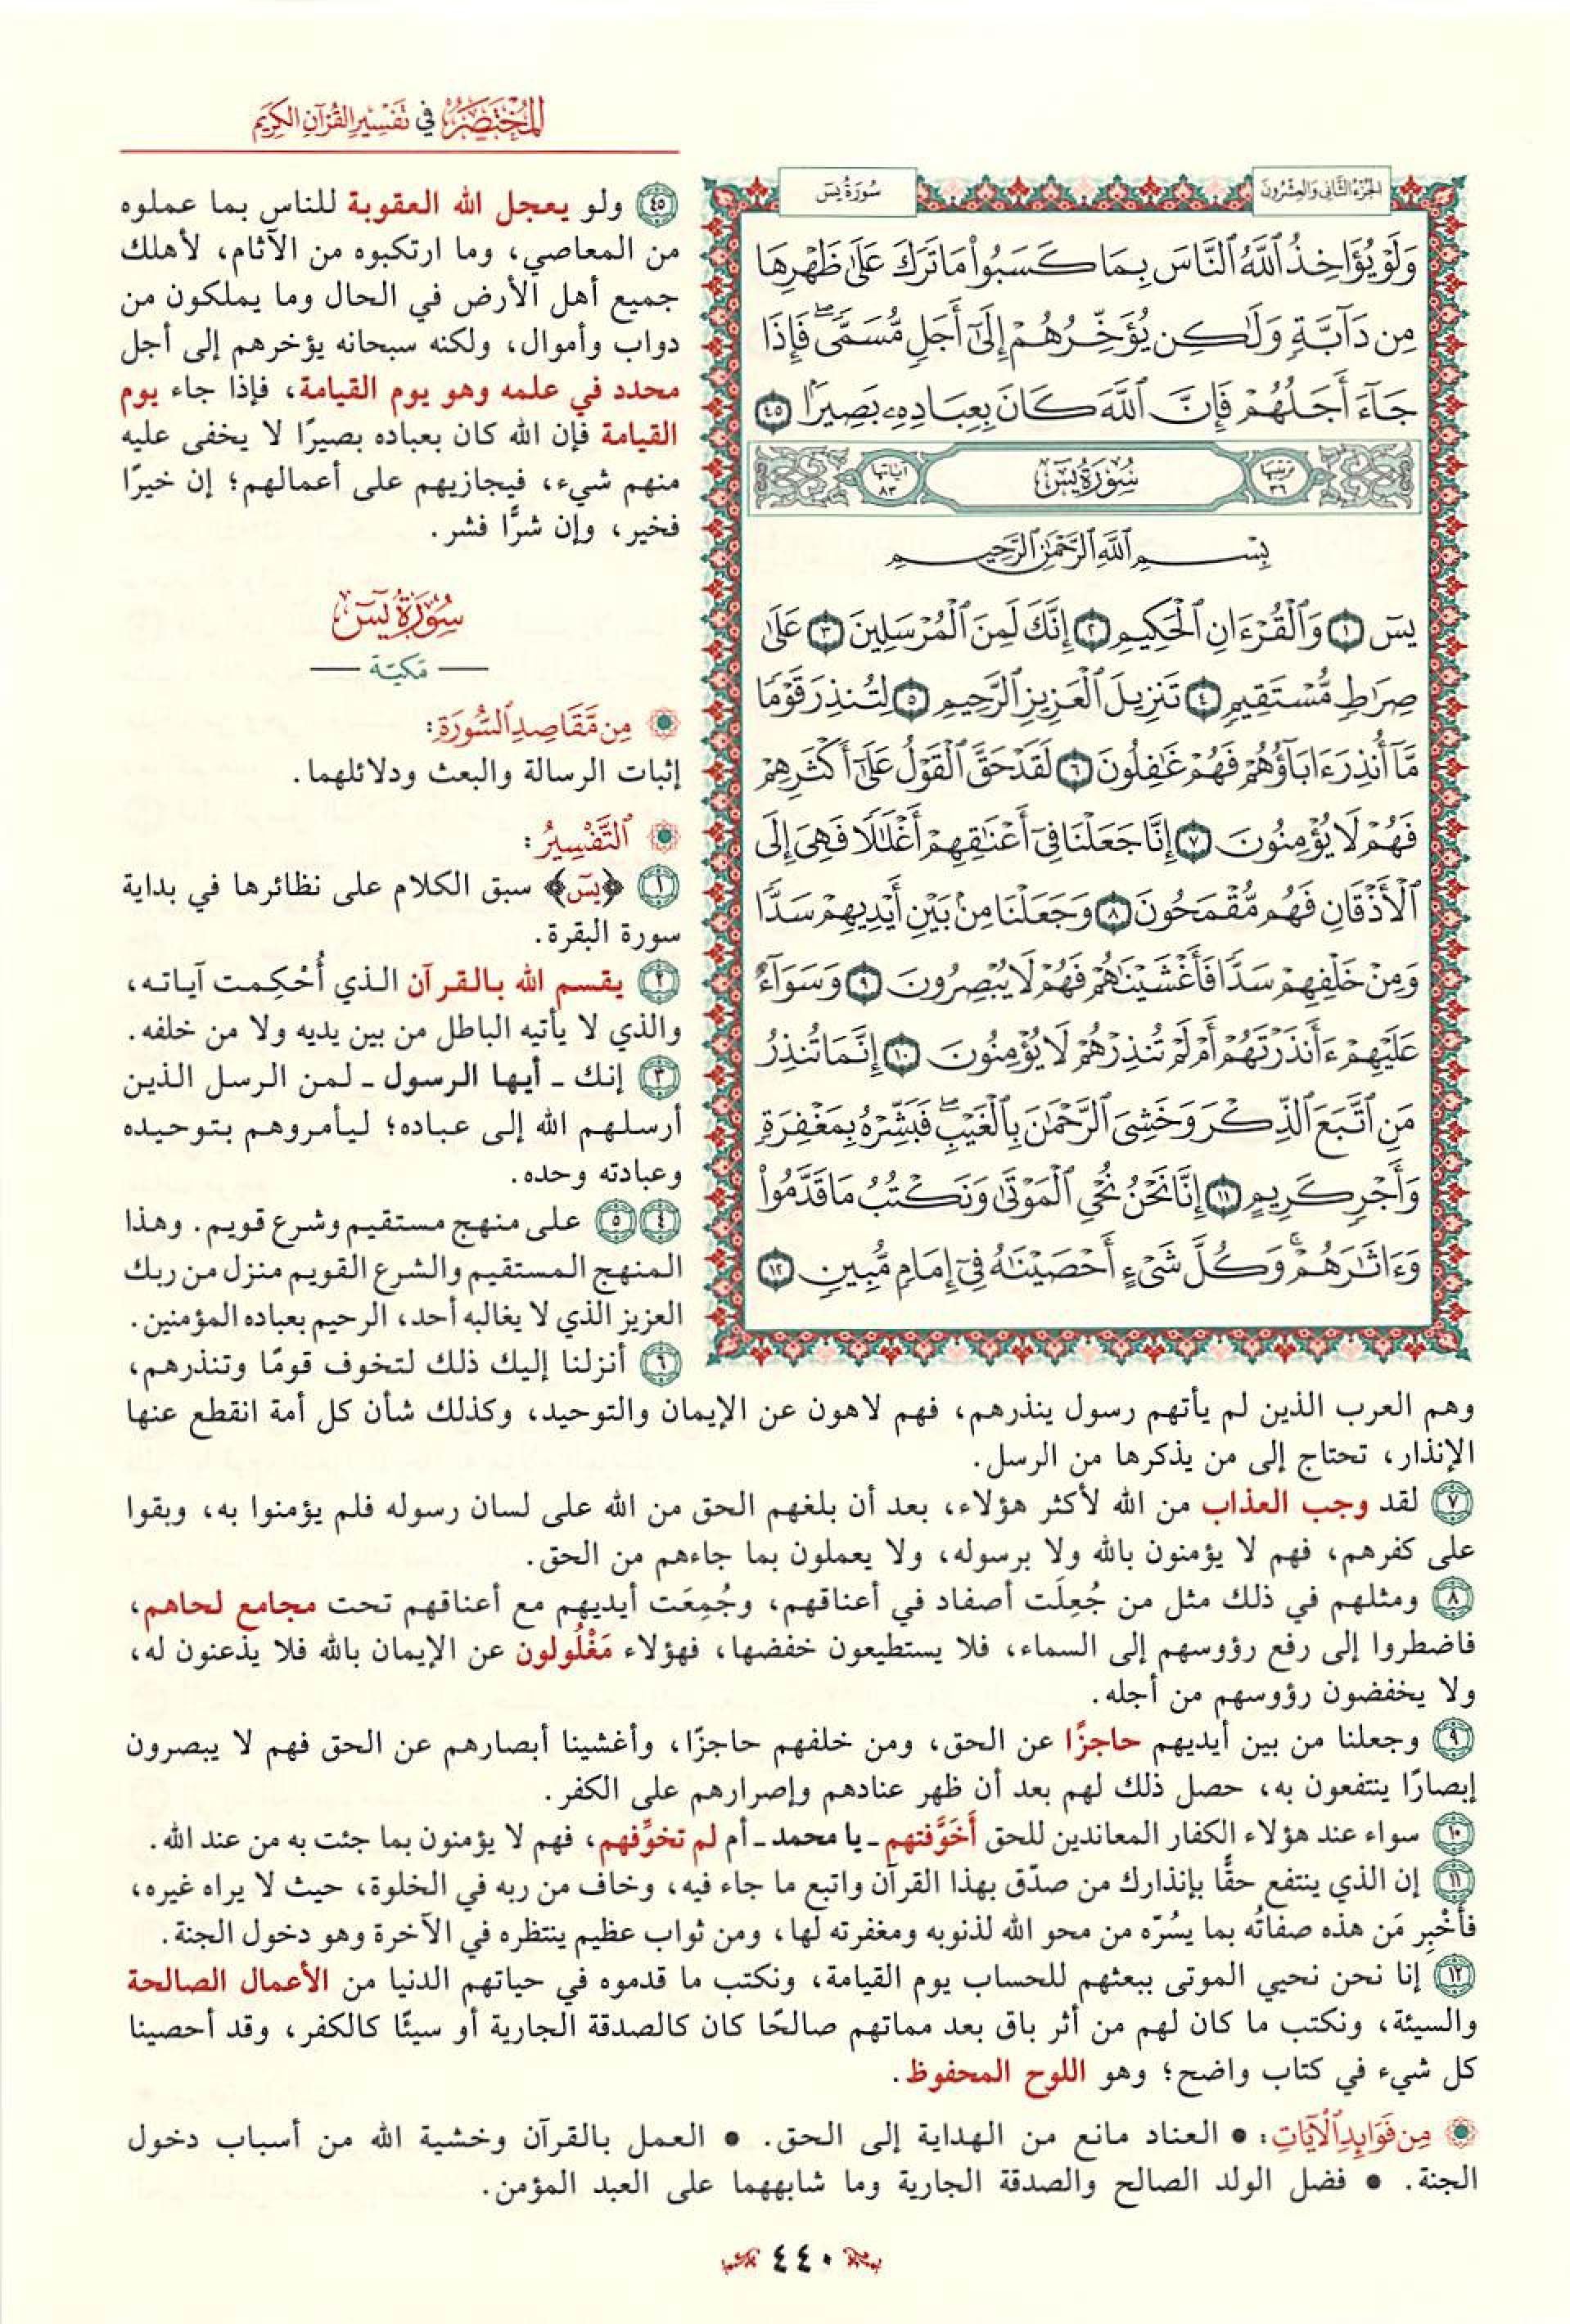 المختصر في تفسير القرآن الكريم
الجزء الثاني والعشرون
سورة يس
وَلَوْ يُؤَاخِذُ ٱللَّهُ ٱلنَّاسَ بِمَا كَسَبُواْ مَا تَرَكَ عَلَىٰ ظَهْرِهَا
مِن دَآبَّةٍ وَلَٰكِن يُؤَخِّرُهُمْ إِلَىٰٓ أَجَلٍ مُّسَمًّىۖ فَإِذَا
جَآءَ أَجَلُهُمْ فَإِنَّ ٱللَّهَ كَانَ بِعِبَادِهِۦ بَصِيرًۢا ٤٥
ترتيبها ٣٦ سُورَةُ يسٓ آياتها ٨٣
بِسْمِ ٱللَّهِ ٱلرَّحْمَٰنِ ٱلرَّحِيمِ
يسٓ ١ وَٱلْقُرْءَانِ ٱلْحَكِيمِ ٢ إِنَّكَ لَمِنَ ٱلْمُرْسَلِينَ ٣ عَلَىٰ
صِرَٰطٍ مُّسْتَقِيمٍ ٤ تَنزِيلَ ٱلْعَزِيزِ ٱلرَّحِيمِ ٥ لِتُنذِرَ قَوْمًا
مَّآ أُنذِرَ ءَابَآؤُهُمْ فَهُمْ غَٰفِلُونَ ٦ لَقَدْ حَقَّ ٱلْقَوْلُ عَلَىٰٓ أَكْثَرِهِمْ
فَهُمْ لَا يُؤْمِنُونَ ٧ إِنَّا جَعَلْنَا فِىٓ أَعْنَٰقِهِمْ أَغْلَٰلًا فَهِىَ إِلَى
ٱلْأَذْقَانِ فَهُم مُّقْمَحُونَ ٨ وَجَعَلْنَا مِنۢ بَيْنِ أَيْدِيهِمْ سَدًّا
وَمِنْ خَلْفِهِمْ سَدًّا فَأَغْشَيْنَٰهُمْ فَهُمْ لَا يُبْصِرُونَ ٩ وَسَوَآءٌ
عَلَيْهِمْ ءَأَنذَرْتَهُمْ أَمْ لَمْ تُنذِرْهُمْ لَا يُؤْمِنُونَ ١٠ إِنَّمَا تُنذِرُ
مَنِ ٱتَّبَعَ ٱلذِّكْرَ وَخَشِىَ ٱلرَّحْمَٰنَ بِٱلْغَيْبِۖ فَبَشِّرْهُ بِمَغْفِرَةٍ
وَأَجْرٍ كَرِيمٍ ١١ إِنَّا نَحْنُ نُحْىِ ٱلْمَوْتَىٰ وَنَكْتُبُ مَا قَدَّمُواْ
وَءَاثَٰرَهُمْۚ وَكُلَّ شَىْءٍ أَحْصَيْنَٰهُ فِىٓ إِمَامٍ مُّبِينٍ ١٢
٤٥ ولو يعجل الله العقوبة للناس بما عملوه
من المعاصي، وما ارتكبوه من الآثام، لأهلك
جميع أهل الأرض في الحال وما يملكون من
دواب وأموال، ولكنه سبحانه يؤخرهم إلى أجل
محدد في علمه وهو يوم القيامة، فإذا جاء يوم
القيامة فإن الله كان بعباده بصيرًا لا يخفى عليه
منهم شيء، فيجازيهم على أعمالهم؛ إن خيرًا
فخير، وإن شرًّا فشر.
سُورَةُ يسٓ
مكية
مِن مَّقَاصِدِ ٱلسُّورَةِ:
إثبات الرسالة والبعث ودلائلهما.
ٱلتَّفْسِيرُ:
١ ﴿يسٓ﴾ سبق الكلام على نظائرها في بداية
سورة البقرة.
٢ يقسم الله بالقرآن الذي أُحْكِمت آياته،
والذي لا يأتيه الباطل من بين يديه ولا من خلفه.
٣ إنك ـ أيها الرسول ـ لمن الرسل الذين
أرسلهم الله إلى عباده؛ ليأمروهم بتوحيده
وعبادته وحده.
٤ ٥ على منهج مستقيم وشرع قويم. وهذا
المنهج المستقيم والشرع القويم منزل من ربك
العزيز الذي لا يغالبه أحد، الرحيم بعباده المؤمنين.
٦ أنزلنا إليك ذلك لتخوف قومًا وتنذرهم،
وهم العرب الذين لم يأتهم رسول ينذرهم، فهم لاهون عن الإيمان والتوحيد، وكذلك شأن كل أمة انقطع عنها
الإنذار، تحتاج إلى من يذكرها من الرسل.
٧ لقد وجب العذاب من الله لأكثر هؤلاء، بعد أن بلغهم الحق من الله على لسان رسوله فلم يؤمنوا به، وبقوا
على كفرهم، فهم لا يؤمنون بالله ولا برسوله، ولا يعملون بما جاءهم من الحق.
٨ ومثلهم في ذلك مثل من جُعِلَت أصفاد في أعناقهم، وجُمِعَت أيديهم مع أعناقهم تحت مجامع لحاهم،
فاضطروا إلى رفع رؤوسهم إلى السماء، فلا يستطيعون خفضها، فهؤلاء مَغْلُولون عن الإيمان بالله فلا يذعنون له،
ولا يخفضون رؤوسهم من أجله.
٩ وجعلنا من بين أيديهم حاجزًا عن الحق، ومن خلفهم حاجزًا، وأغشينا أبصارهم عن الحق فهم لا يبصرون
إبصارًا ينتفعون به، حصل ذلك لهم بعد أن ظهر عنادهم وإصرارهم على الكفر.
١٠ سواء عند هؤلاء الكفار المعاندين للحق أَخَوَّفتهم ـ يا محمد ـ أم لم تخوِّفهم، فهم لا يؤمنون بما جئت به من عند الله.
١١ إن الذي ينتفع حقًّا بإنذارك من صدّق بهذا القرآن واتبع ما جاء فيه، وخاف من ربه في الخلوة، حيث لا يراه غيره،
فأَخْبِر مَن هذه صفاتُه بما يسُرّه من محو الله لذنوبه ومغفرته لها، ومن ثواب عظيم ينتظره في الآخرة وهو دخول الجنة.
١٢ إنا نحن نحيي الموتى ببعثهم للحساب يوم القيامة، ونكتب ما قدموه في حياتهم الدنيا من الأعمال الصالحة
والسيئة، ونكتب ما كان لهم من أثر باق بعد مماتهم صالحًا كان كالصدقة الجارية أو سيئًا كالكفر، وقد أحصينا
كل شيء في كتاب واضح؛ وهو اللوح المحفوظ.
مِن فَوَابِدِ ٱلْآيَاتِ: • العناد مانع من الهداية إلى الحق. • العمل بالقرآن وخشية الله من أسباب دخول
الجنة. • فضل الولد الصالح والصدقة الجارية وما شابههما على العبد المؤمن.
٤٤٠